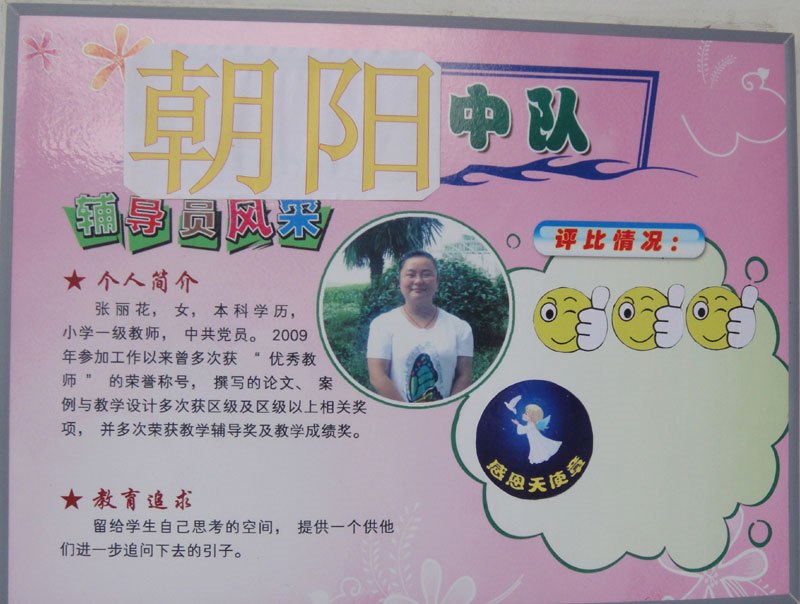 朝阳中队
辅导员风采
评比情况：
★ 个人简介
张丽花， 女， 本科学历，
小学一级教师， 中共党员。 2009
年参加工作以来曾多次获 “ 优秀教
师 ” 的荣誉称号， 撰写的论文、 案
例与教学设计多次获区级及区级以上相关奖
项， 并多次荣获教学辅导奖及教学成绩奖。
感恩天使章
★ 教育追求
留给学生自己思考的空间， 提供一个供他
们进一步追问下去的引子。